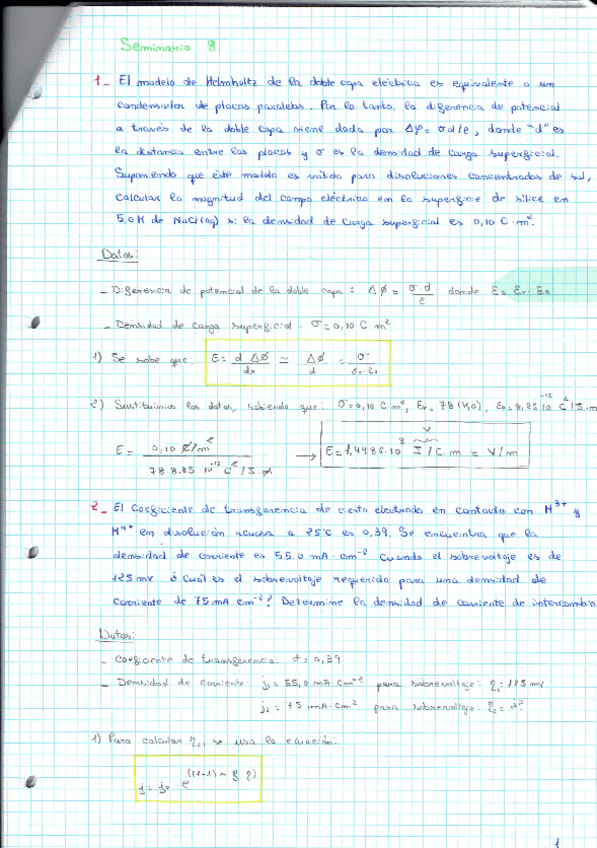 Seminario 8.
1- El modelo de Helmholtz de la doble capa eléctrica es equivalente a un
condensador de placas paralelas. Por lo tanto, la diferencia de potencial
a través de la doble capa viene dada por Δφ = σd/ε, donde "d" es
la distancia entre las placas y σ es la densidad de carga superficial.
Suponiendo que éste modelo es válido para disoluciones concentradas de sal,
calcular la magnitud del campo eléctrico en la superficie de sílice en
5,0 M de NaCl(aq) si la densidad de carga superficial es 0,10 C·m².
Datos:
- Diferencia de potencial de la doble capa: Δφ = σ·d/ε donde ε = εr·ε0
- Densidad de carga superficial. σ = 0,10 C m²
1) Se sabe que: E = d Δφ/dx ≃ Δφ/d = σ/εr·ε0
2) Sustituimos los datos, sabiendo que: σ = 0,10 C m², εr = 78 (H2O), ε0 = 8,85·10⁻¹² C²/J·m
E = 0,10 C/m² / 78 8.85·10⁻¹² C²/J·m → E = 1,4486·10⁸ J/C·m = V/m
V
2- El coeficiente de transferencia de cierto electrodo en contacto con M³⁺ y
M⁴⁺ en disolución acuosa a 25°C es 0,39. Se encuentra que la
densidad de corriente es 55,0 mA·cm⁻² cuando el sobrevoltaje es de
125 mV. ¿Cuál es el sobrevoltaje requerido para una densidad de
corriente de 75 mA cm⁻²? Determine la densidad de corriente de intercambio
Datos:
- Coeficiente de transferencia: α = 0,39
- Densidad de corriente: j₁ = 55,0 mA·cm⁻² para sobrevoltaje: η₁ = 125 mV
j₂ = 75 mA·cm² para sobrevoltaje: η₂ = ¿?
1) Para calcular η₂, se usa la ecuación:
j = j₀ · e
1